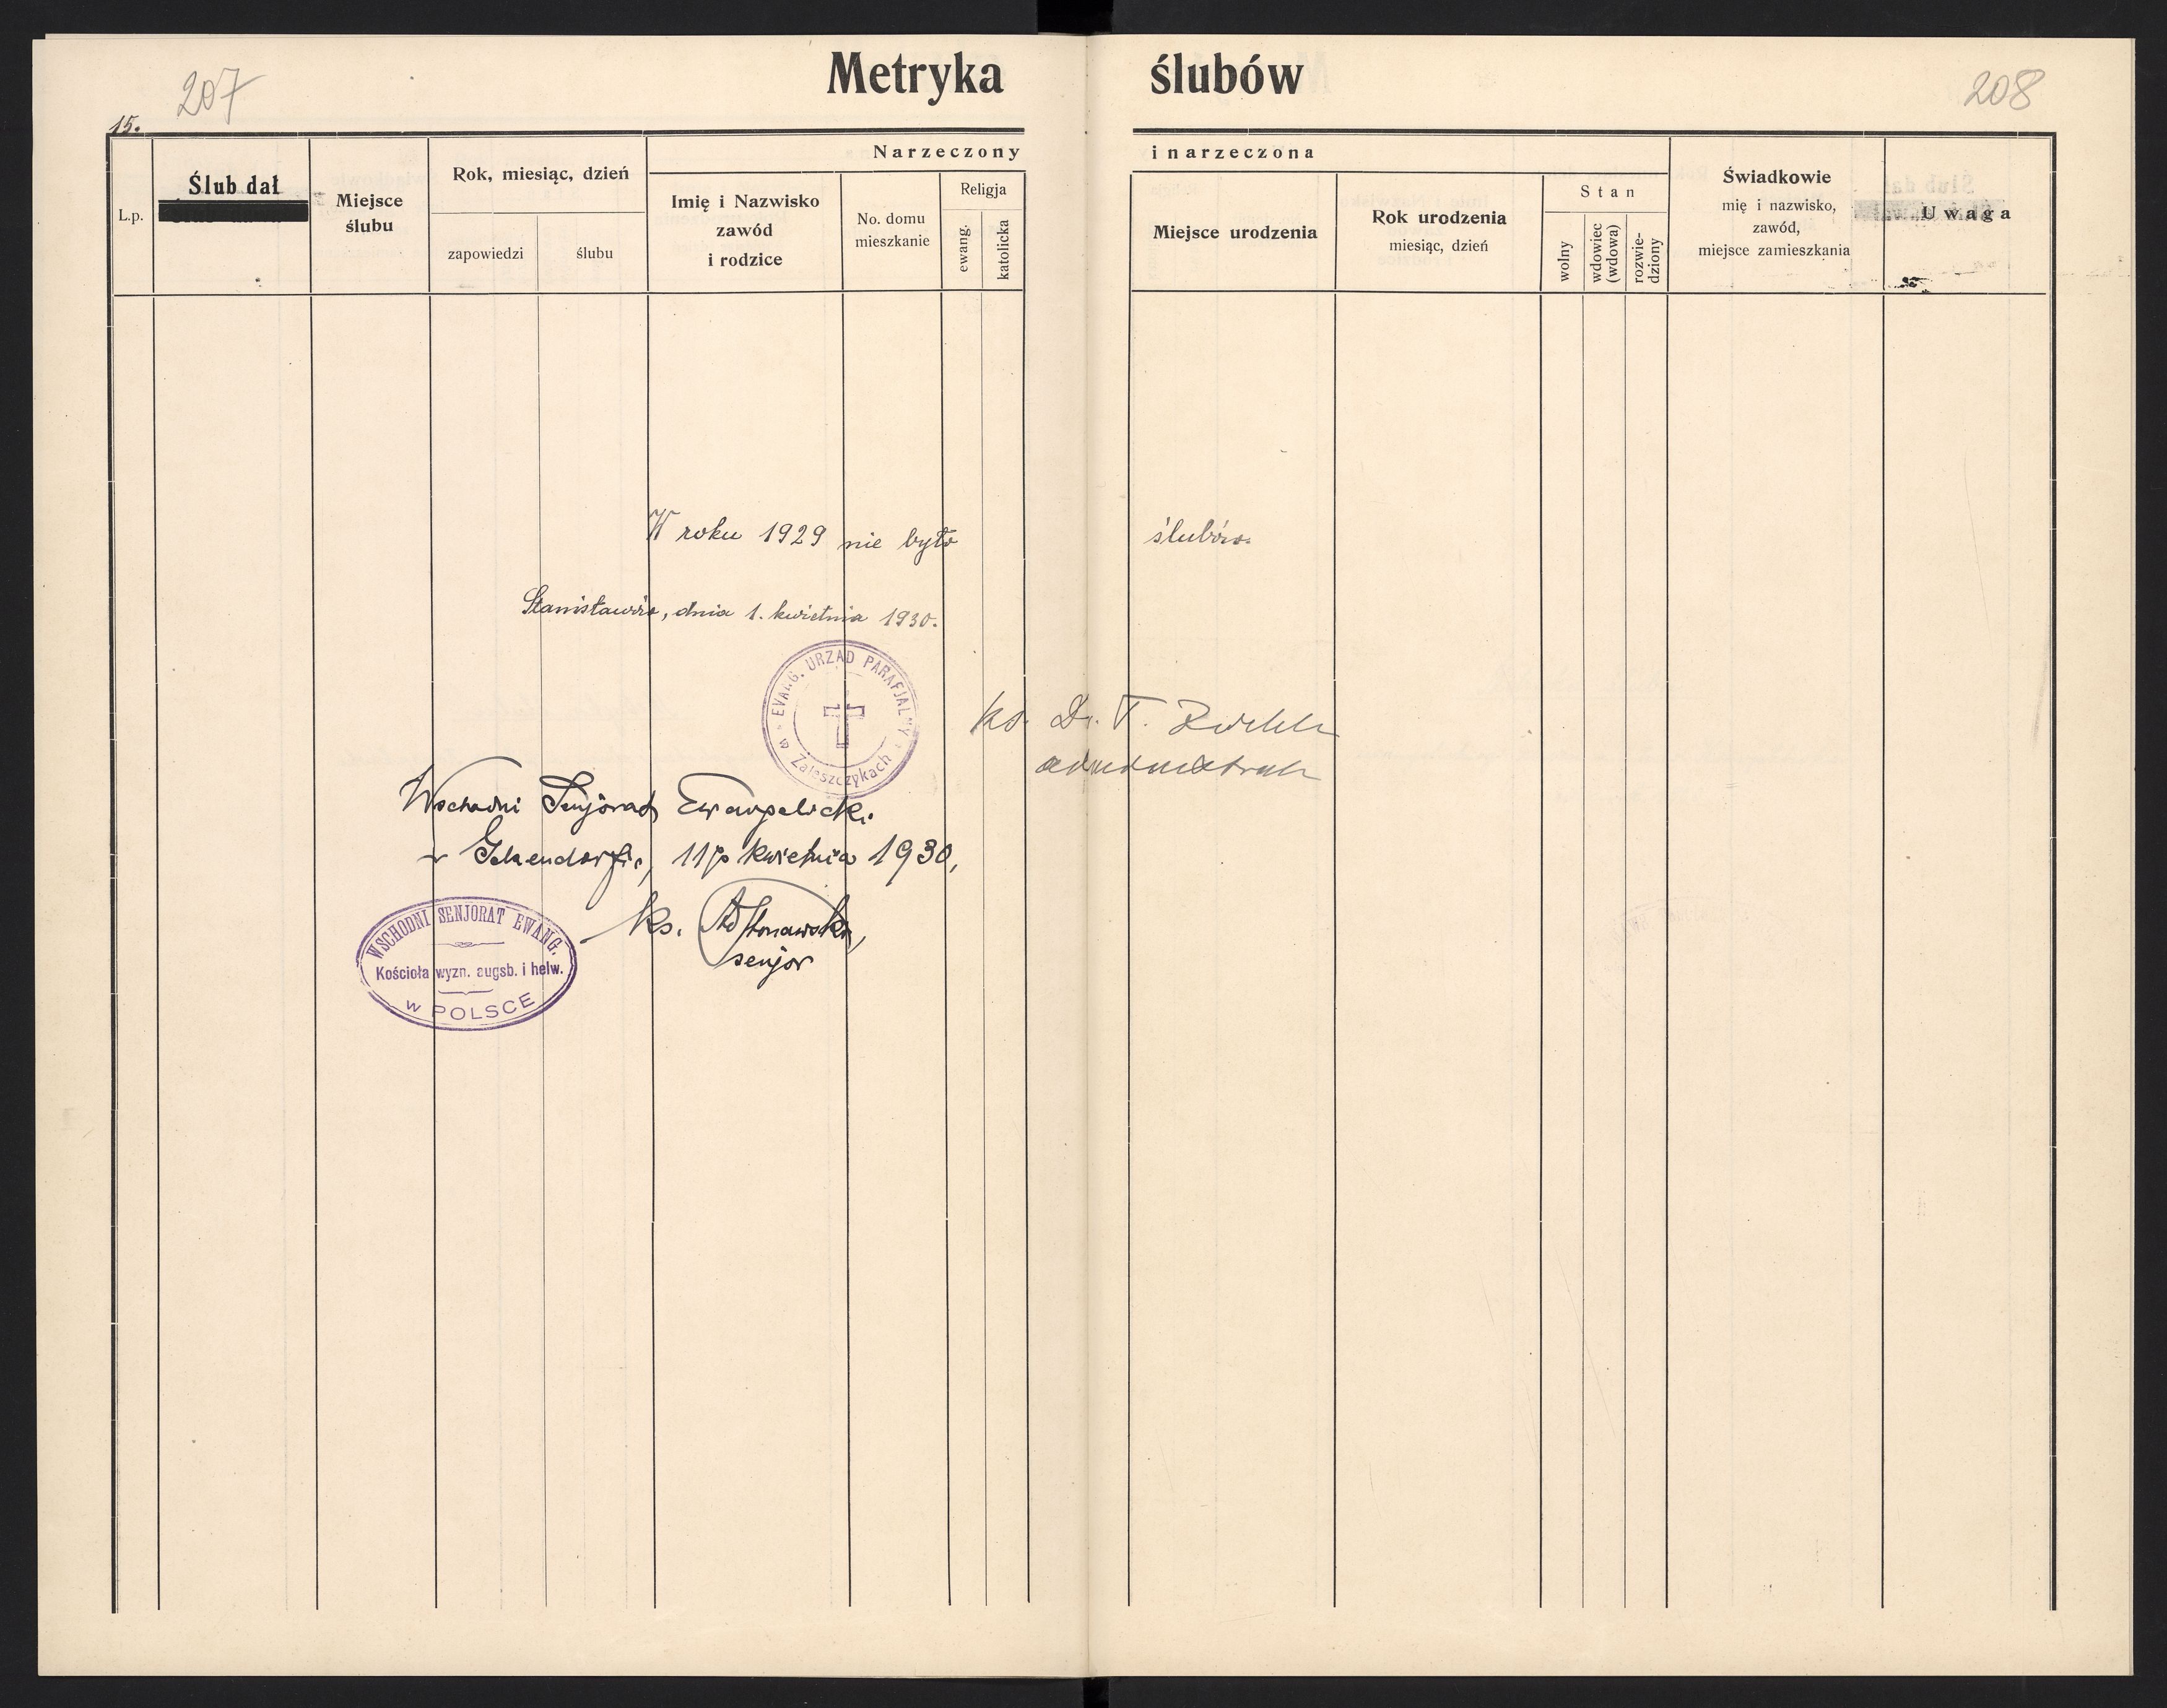 Metryka ślubów
207
208
15.
L.p.
Ślub dał
Miejsce
ślubu
Rok, miesiąc, dzień
zapowiedzi
ślubu
Narzeczony i narzeczona
Imię i Nazwisko
zawód
i rodzice
No. domu
mieszkanie
Religja
ewang.
katolicka
Miejsce urodzenia
Rok urodzenia
miesiąc, dzień
Stan
wolny
wdowiec
(wdowa)
rozwie-
dziony
Świadkowie
mię i nazwisko,
zawód,
miejsce zamieszkania
Uwaga
W roku 1929 nie było ślubów.
Stanisławów, dnia 1. kwietnia 1930.
EVANG. URZĄD PARAFJALNY
w Zaleszczykach
ks. Dr. T.
Wschodni Senjorat Ewangelicki
w Gelsendorfie, 11go kwietnia 1930,
WSCHODNI SENJORAT EWANG.
Kościoła wyzn. augsb. i helw.
w POLSCE
ks.
senjor